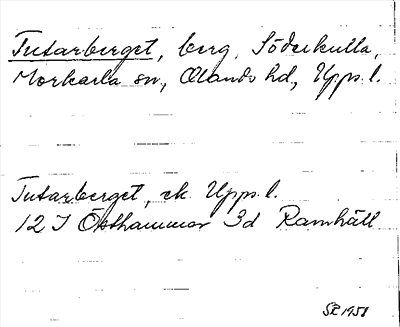 Tutarberget, berg, Söderkulla,
Morkarla sn, Olands hd, Upps. l.
Tutarberget, ek. Upps. l.
12 I Östhammar 3d Ramhäll
SR 1951